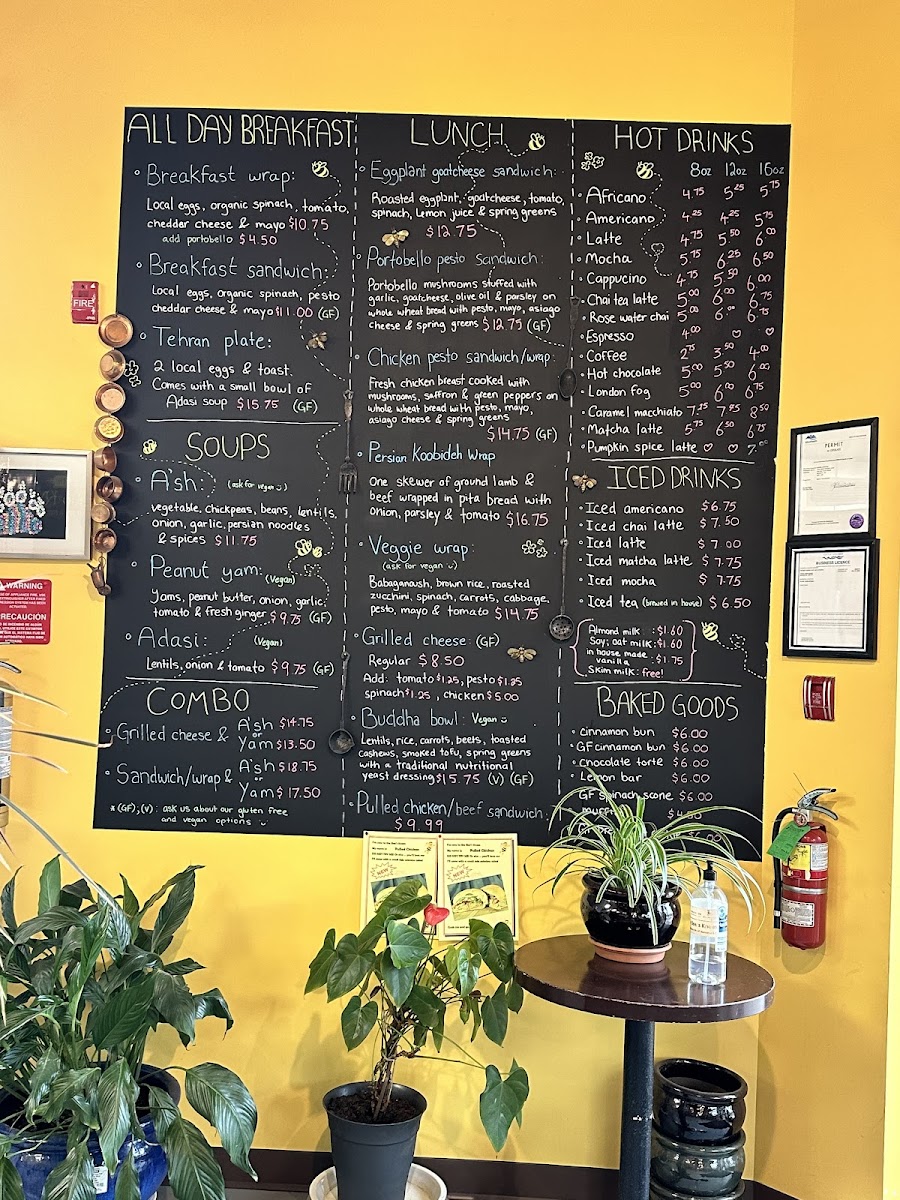 ALL DAY BREAKFAST
Breakfast wrap:
Local eggs, organic spinach, tomato,
chedder cheese & mayo $10.75
add portobello $4.50
Breakfast sandwich:
Local eggs, organic spinach, pesto
cheddar cheese & mayo $11.00 (GF)
Tehran plate:
2 local eggs & toast.
Comes with a small bowl of
Adasi soup $15.75 (GF)
SOUPS
A'sh: (ask for vegan)
vegetable, chickpeas, beans, lentils,
onion, garlic, persian noodles
& spices $11.75
Peanut yam: (Vegan)
Yams, peanut butter, onion, garlic,
tomato & fresh ginger $9.75 (GF)
Adasi: (Vegan)
Lentils, onion & tomato $9.75 (GF)
COMBO
Grilled cheese & A'sh $14.75
or
Yam $13.50
Sandwich/wrap & A'sh $18.75
or
Yam $17.50
*(GF),(V): ask us about our gluten free
and vegan options
LUNCH
Eggplant goatcheese sandwich:
Roasted eggplant, goatcheese, tomato,
spinach, Lemon juice & spring greens
$12.75
Portobello pesto sandwich:
Portobello mushrooms stuffed with
garlic, goatcheese, olive oil & parsley on
whole wheat bread with pesto, mayo, asiago
cheese & spring greens $12.75 (GF)
Chicken pesto sandwich/wrap:
Fresh chicken breast cooked with
mushrooms, saffron & green peppers on
whole wheat bread with pesto, mayo,
asiago cheese & spring greens
$14.75 (GF)
Persian Koobideh Wrap
One skewer of ground lamb &
beef wrapped in pita bread with
onion, parsley & tomato $16.75
Veggie wrap:
(ask for vegan)
Babaganoush, brown rice, roasted
zucchini, spinach, carrots, cabbage,
pesto, mayo & tomato $14.75
Grilled cheese: (GF)
Regular $8.50
Add: tomato $1.25, pesto $1.25
spinach $1.25, chicken $5.00
Buddha bowl: Vegan
Lentils, rice, carrots, beets, toasted
cashews, smoked tofu, spring greens
with a traditional nutritional
yeast dressing $15.75 (V) (GF)
Pulled chicken/beef sandwich:
$9.99
HOT DRINKS
8oz 12oz 16oz
Africano 4.75 5.25 5.75
Americano 4.25 4.25 5.75
Latte 4.75 5.50 6.00
Mocha 5.75 6.25 6.50
Cappucino 4.75 5.50 6.00
Chai tea latte 5.00 6.00 6.75
Rose water chai 5.00 6.00 6.75
Espresso 4.00
Coffee 2.75 3.50 4.00
Hot chocolate 5.00 5.50 6.00
London fog 5.00 6.00 6.75
Caramel macchiato 7.25 7.95 8.50
Matcha latte 5.75 6.50 6.75
Pumpkin spice latte 7.00
ICED DRINKS
Iced americano $6.75
Iced chai latte $7.50
Iced latte $7.00
Iced matcha latte $7.75
Iced mocha $7.75
Iced tea (brewed in house) $6.50
Almond milk: $1.60
Soy; oat milk: $1.60
in house made
vanilla : $1.75
Skim milk: free!
BAKED GOODS
cinnamon bun $6.00
GF cinnamon bun $6.00
chocolate torte $6.00
Lemon bar $6.00
GF Spinach scone $6.00
FIRE
WARNING
PRECAUCIÓN
PERMIT
BUSINESS LICENCE
Pulled Chicken
NEW
NEW